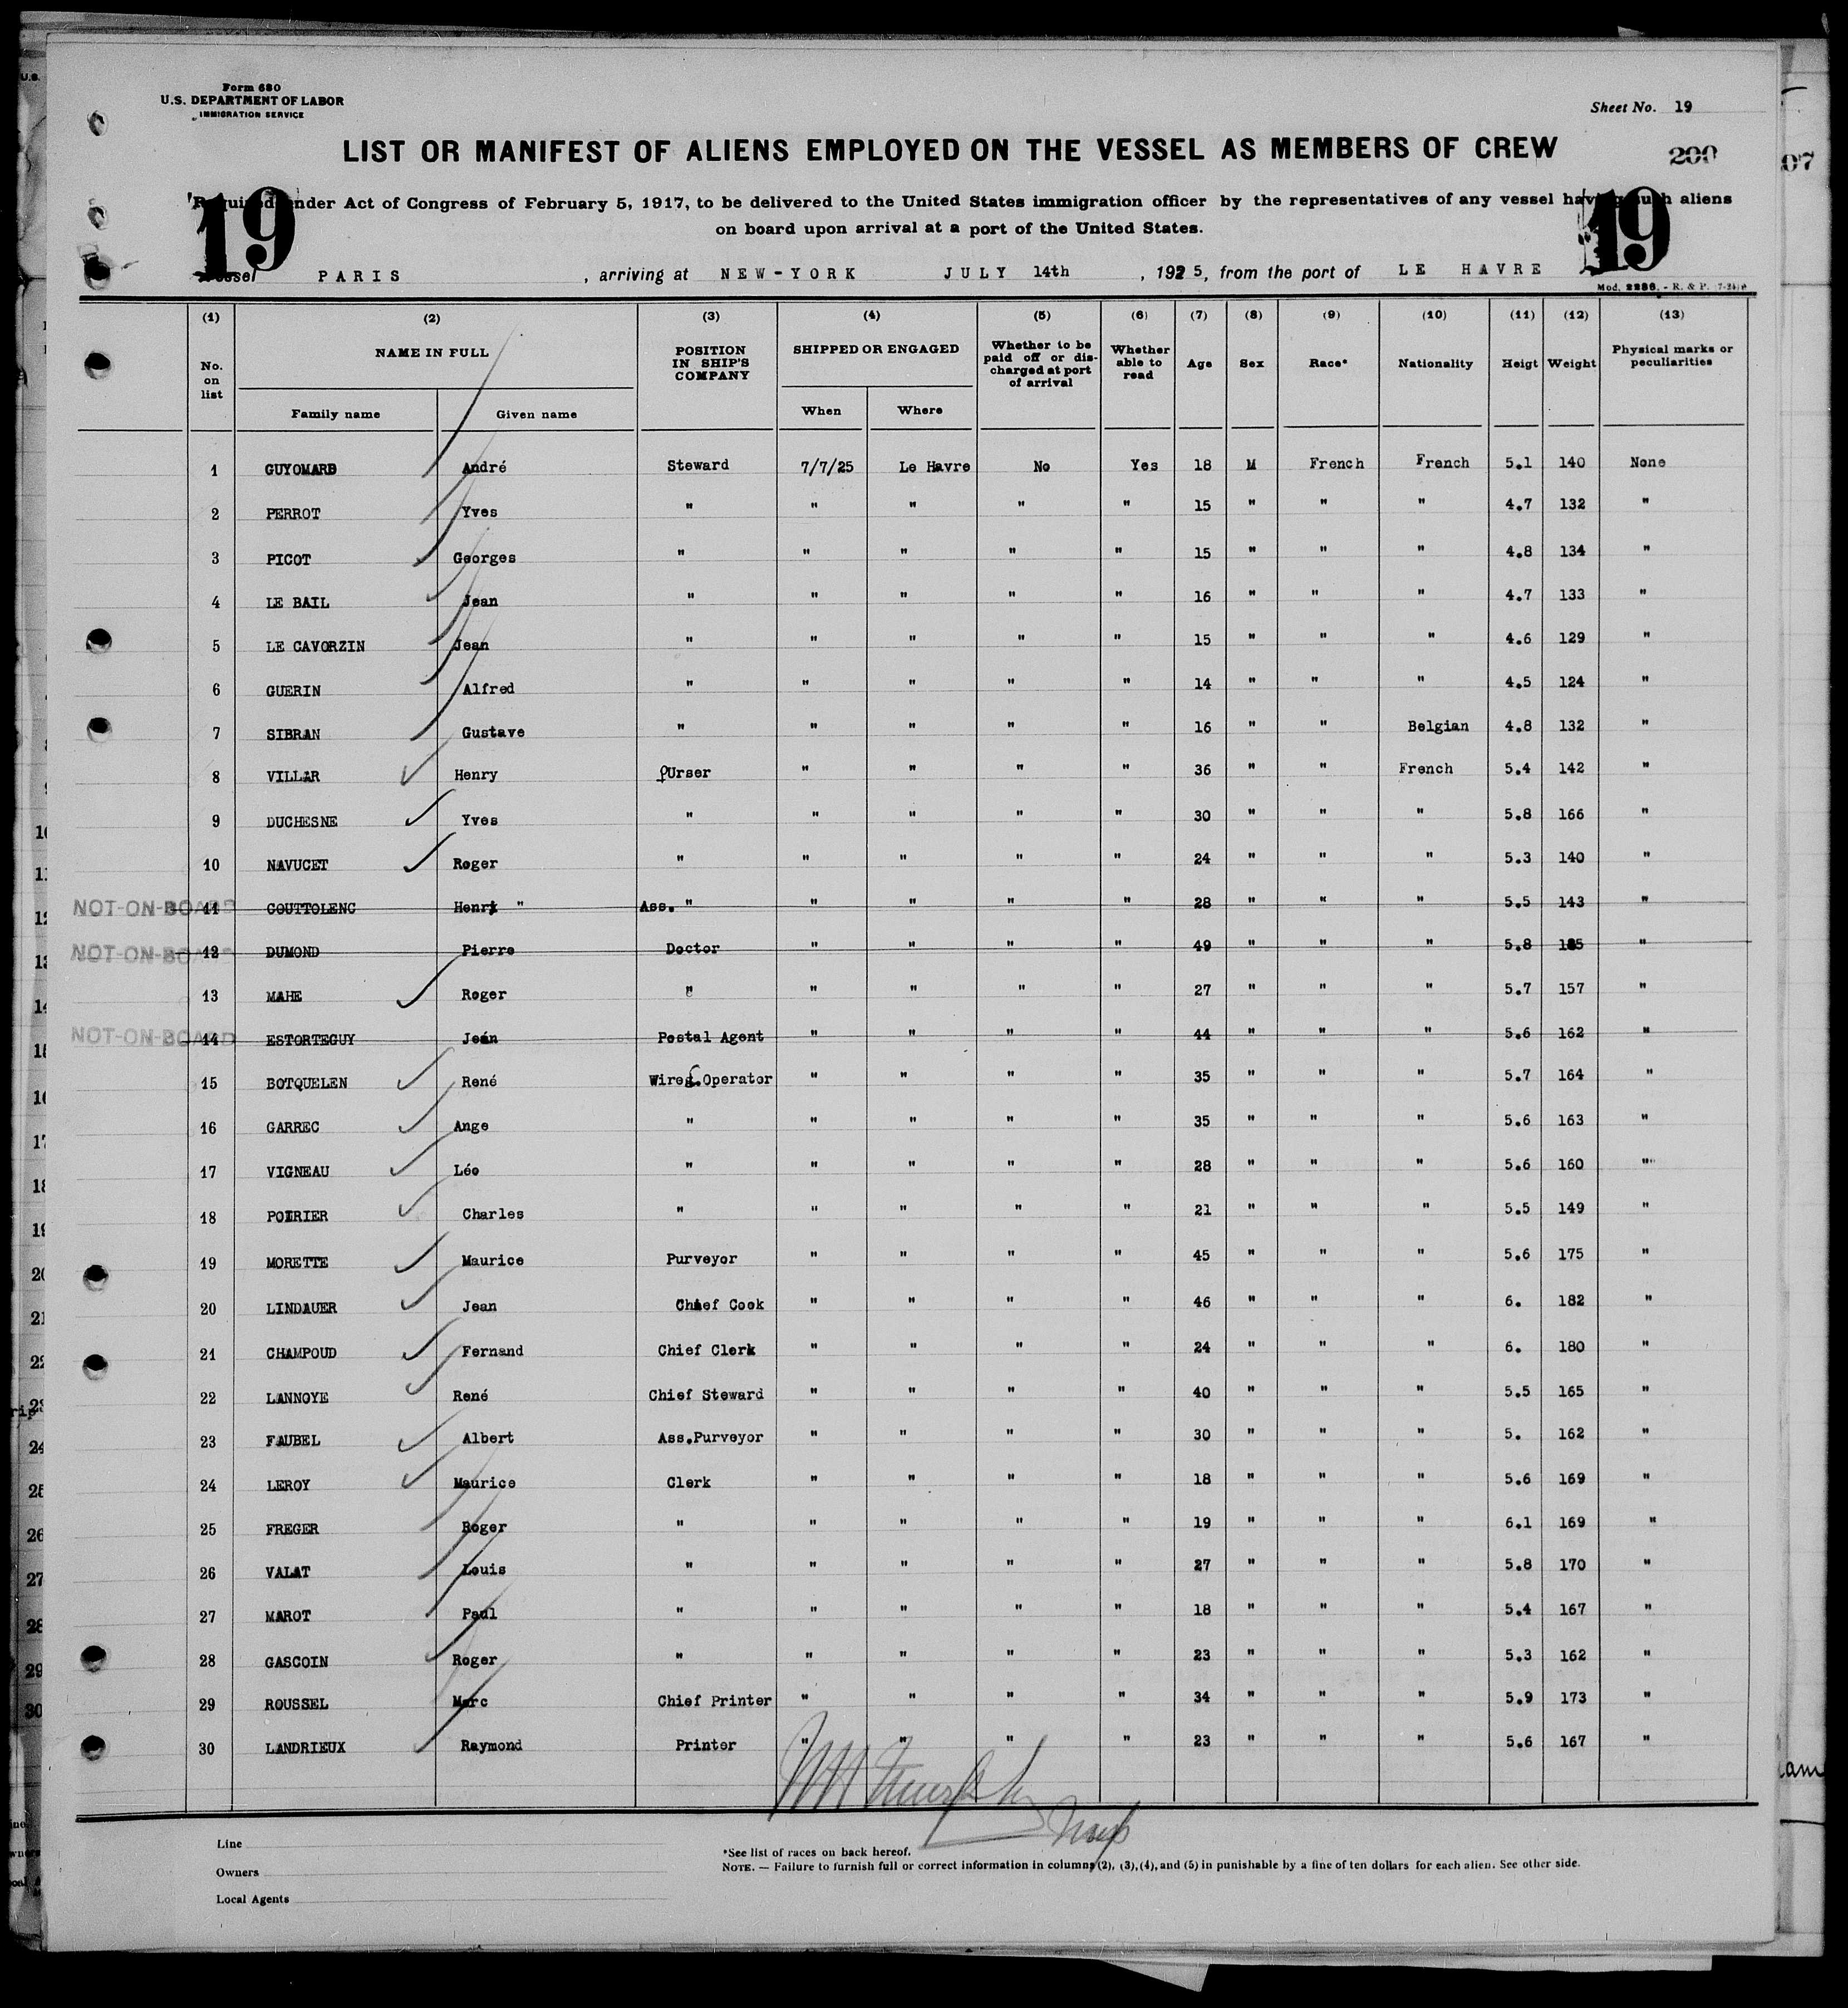 Form 680
U.S. DEPARTMENT OF LABOR
IMMIGRATION SERVICE
Sheet No. 19
LIST OR MANIFEST OF ALIENS EMPLOYED ON THE VESSEL AS MEMBERS OF CREW
200
07
19
19
Required under Act of Congress of February 5, 1917, to be delivered to the United States immigration officer by the representatives of any vessel having such aliens
on board upon arrival at a port of the United States.
Vessel PARIS , arriving at NEW-YORK JULY 14th , 1925, from the port of LE HAVRE
Mod. 2286. - R. & P.
(1) (2) (3) (4) (5) (6) (7) (8) (9) (10) (11) (12) (13)
No. on list NAME IN FULL POSITION IN SHIP'S COMPANY SHIPPED OR ENGAGED Whether to be paid off or discharged at port of arrival Whether able to read Age Sex Race* Nationality Heigt Weight Physical marks or peculiarities
Family name Given name When Where
1 GUYOMARD André Steward 7/7/25 Le Havre No Yes 18 M French French 5.1 140 None
2 PERROT Yves " " " " " 15 " " " 4.7 132 "
3 PICOT Georges " " " " " 15 " " " 4.8 134 "
4 LE BAIL Jean " " " " " 16 " " " 4.7 133 "
5 LE CAVORZIN Jean " " " " " 15 " " " 4.6 129 "
6 GUERIN Alfred " " " " " 14 " " " 4.5 124 "
7 SIBRAN Gustave " " " " " 16 " " Belgian 4.8 132 "
8 VILLAR Henry PUrser " " " " 36 " " French 5.4 142 "
9 DUCHESNE Yves " " " " " 30 " " " 5.8 166 "
10 NAVUCET Roger " " " " " 24 " " " 5.3 140 "
NOT-ON-BOARD 11 COUTTOLENC Henry " Ass. " " " " " 28 " " " 5.5 143 "
NOT-ON-BOARD 12 DUMOND Pierre Doctor " " " " 49 " " " 5.8 185 "
13 MAHE Roger " " " " " 27 " " " 5.7 157 "
NOT-ON-BOARD 14 ESTORTEGUY Jean Postal Agent " " " " 44 " " " 5.6 162 "
15 BOTQUELEN René Wirel.Operator " " " " 35 " " " 5.7 164 "
16 GARREC Ange " " " " " 35 " " " 5.6 163 "
17 VIGNEAU Léo " " " " " 28 " " " 5.6 160 "
18 POIRIER Charles " " " " " 21 " " " 5.5 149 "
19 MORETTE Maurice Purveyor " " " " 45 " " " 5.6 175 "
20 LINDAUER Jean Chief Cook " " " " 46 " " " 6. 182 "
21 CHAMPOUD Fernand Chief Clerk " " " " 24 " " " 6. 180 "
22 LANNOYE René Chief Steward " " " " 40 " " " 5.5 165 "
23 FAUBEL Albert Ass.Purveyor " " " " 30 " " " 5. 162 "
24 LEROY Maurice Clerk " " " " 18 " " " 5.6 169 "
25 FREGER Roger " " " " " 19 " " " 6.1 169 "
26 VALAT Louis " " " " " 27 " " " 5.8 170 "
27 MAROT Paul " " " " " 18 " " " 5.4 167 "
28 GASCOIN Roger " " " " " 23 " " " 5.3 162 "
29 ROUSSEL Marc Chief Printer " " " " 34 " " " 5.9 173 "
30 LANDRIEUX Raymond Printer " " " " 23 " " " 5.6 167 "
Line
Owners
Local Agents
*See list of races on back hereof.
NOTE. — Failure to furnish full or correct information in columns (2), (3), (4), and (5) in punishable by a fine of ten dollars for each alien. See other side.